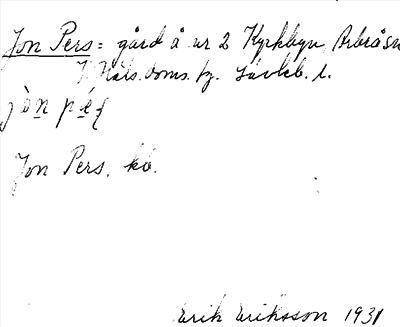 Jon Pers = gård å nr 2 Kyrkbyn, Arbrå sn
V. Häls. doms. fg. Gävleb. l.
jò̱n pé̱ʂ
Jon Pers. kb.
Erik Eriksson 1931